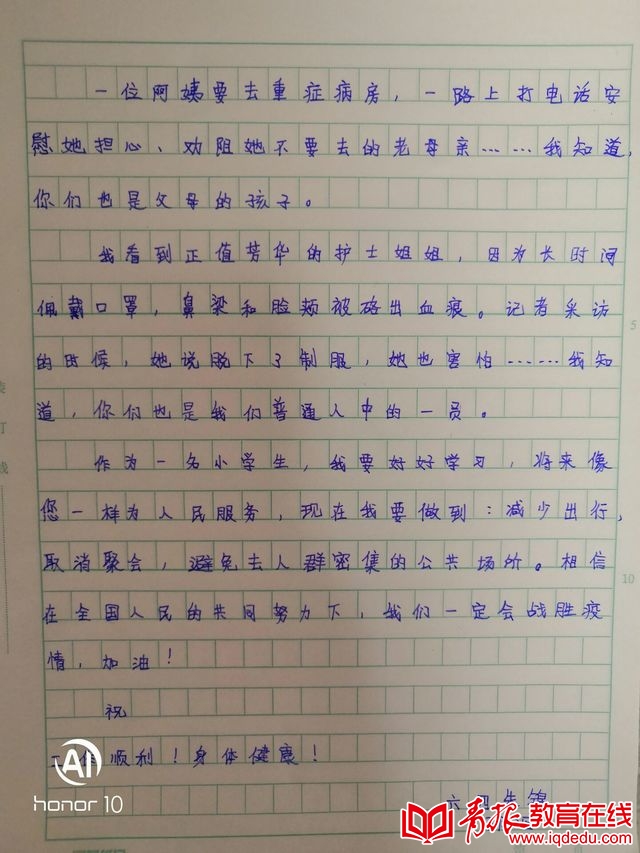 一位阿姨要去重症病房，一路上打电话安
慰她担心、劝阻她不要去的老母亲……我知道，
你们也是父母的孩子。
我看到正值芳华的护士姐姐，因为长时间
佩戴口罩，鼻梁和脸颊被硌出血痕。记者采访
的时候，她说脱下了制服，她也害怕……我知
道，你们也是我们普通人中的一员。
作为一名小学生，我要好好学习，将来像
您一样为人民服务，现在我要做到：减少出行，
取消聚会，避免去人群密集的公共场所。相信
在全国人民的共同努力下，我们一定会战胜疫
情，加油！
祝
顺利！身体健康！
六四
5
10
装
订
线
AI
honor 10
青报教育在线
www.iqdedu.com